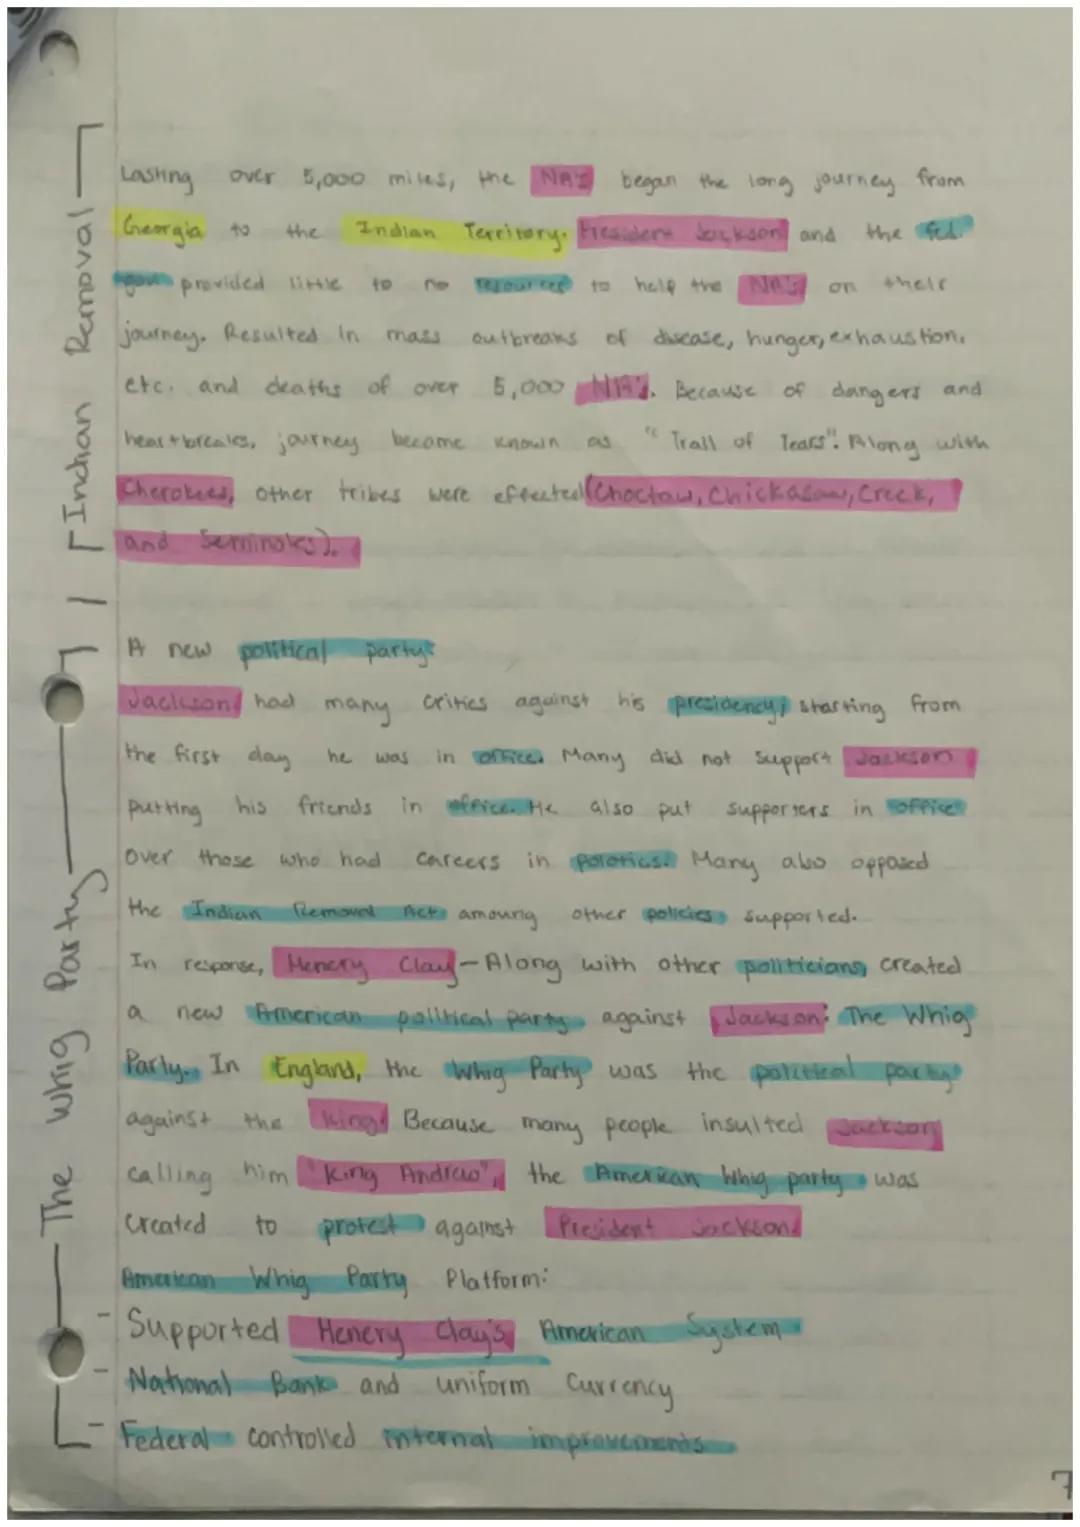 Indian Removal
Lasting over 5,000 miles, the NA's began the long journey from
Georgia to the Indian Territory. President Jackson and the fed.
gov. provided little to no resources to help the NA's on their
journey. Resulted in mass outbreaks of disease, hunger, exhaustion,
etc. and deaths of over 5,000 NA's. Because of dangers and
heartbreaks, journey become known as "Trail of Tears". Along with
Cherokees, other tribes were effected (Choctaw, Chickasaw, Creek,
and Seminoles).
The Whig Party
A new political party:
Jackson had many critics against his presidency, starting from
the first day he was in office. Many did not support Jackson
putting his friends in office. He also put supporters in office
over those who had careers in polotics. Many also opposed
the Indian Removal Act amoung other policies supported.
In response, Henery Clay-Along with other politicians, created
a new American political party against Jackson: The Whig
Party. In England, the Whig Party was the political party
against the King. Because many people insulted Jackson
calling him "King Andrew", the American Whig party was
created to protest against President Jackson.
American Whig Party Platform:
- Supported Henery Clay's American System
- National Bank and uniform Currency
- Federal controlled internal improvements
7